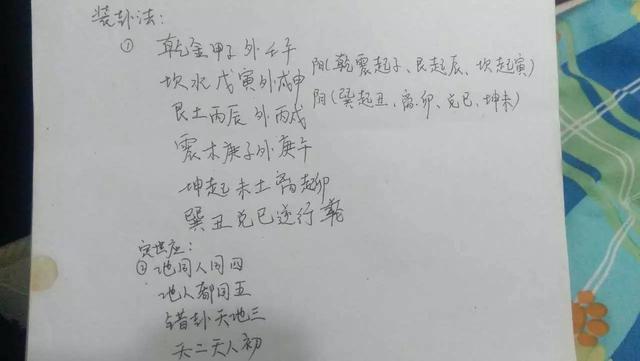 装卦法：
① 乾金甲子外壬午
坎水戊寅外戊申 阳(乾震起子、艮起辰、坎起寅)
艮土丙辰外丙戌 阳(巽起丑、离.卯、兑巳、坤未)
震木庚子外庚午
坤起未土离起卯
巽丑兑巳逆行轮
定世应：
② 地同人同四
地人都同五
错卦天地三
天二天人初